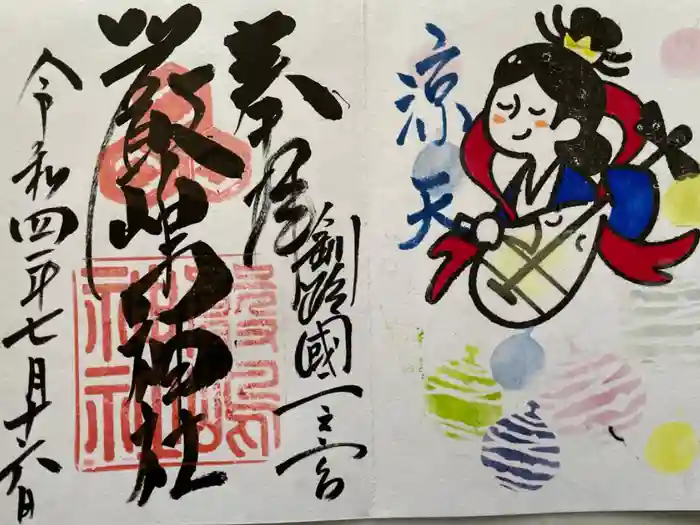 涼天
奉拝
釧路國一之宮
厳島神社
嚴島
神社
令和四年七月十六日